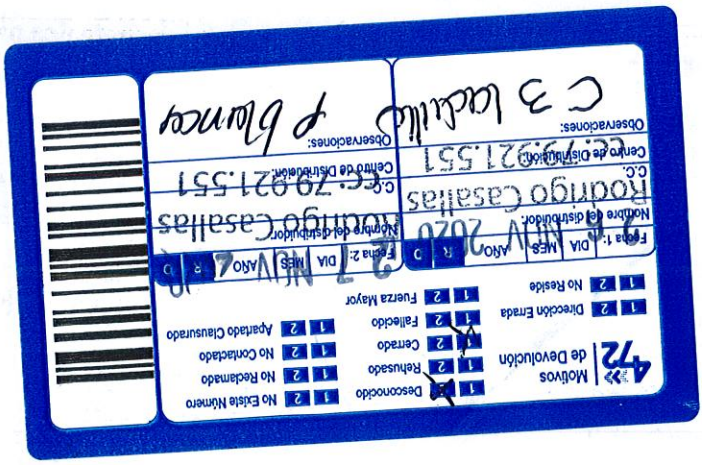 472
Motivos
de Devolución
1 2 Dirección Errada
1 2 No Reside
1 2 Desconocido
1 2 Rehusado
1 2 Cerrado
1 2 Fallecido
1 2 Fuerza Mayor
1 2 No Existe Número
1 2 No Reclamado
1 2 No Contactado
1 2 Apartado Clausurado
Fecha 1: DIA MES AÑO R D
NOV 2020
Nombre del distribuidor:
Rodrigo Casallas
C.C. 79.921.551
Centro de Distribución:
Observaciones:
C 3 ladrillo
Fecha 2: DIA MES AÑO R D
27 NOV
Nombre del distribuidor:
Rodrigo Casallas
C.C. 79.921.551
Centro de Distribución:
Observaciones:
P blanca